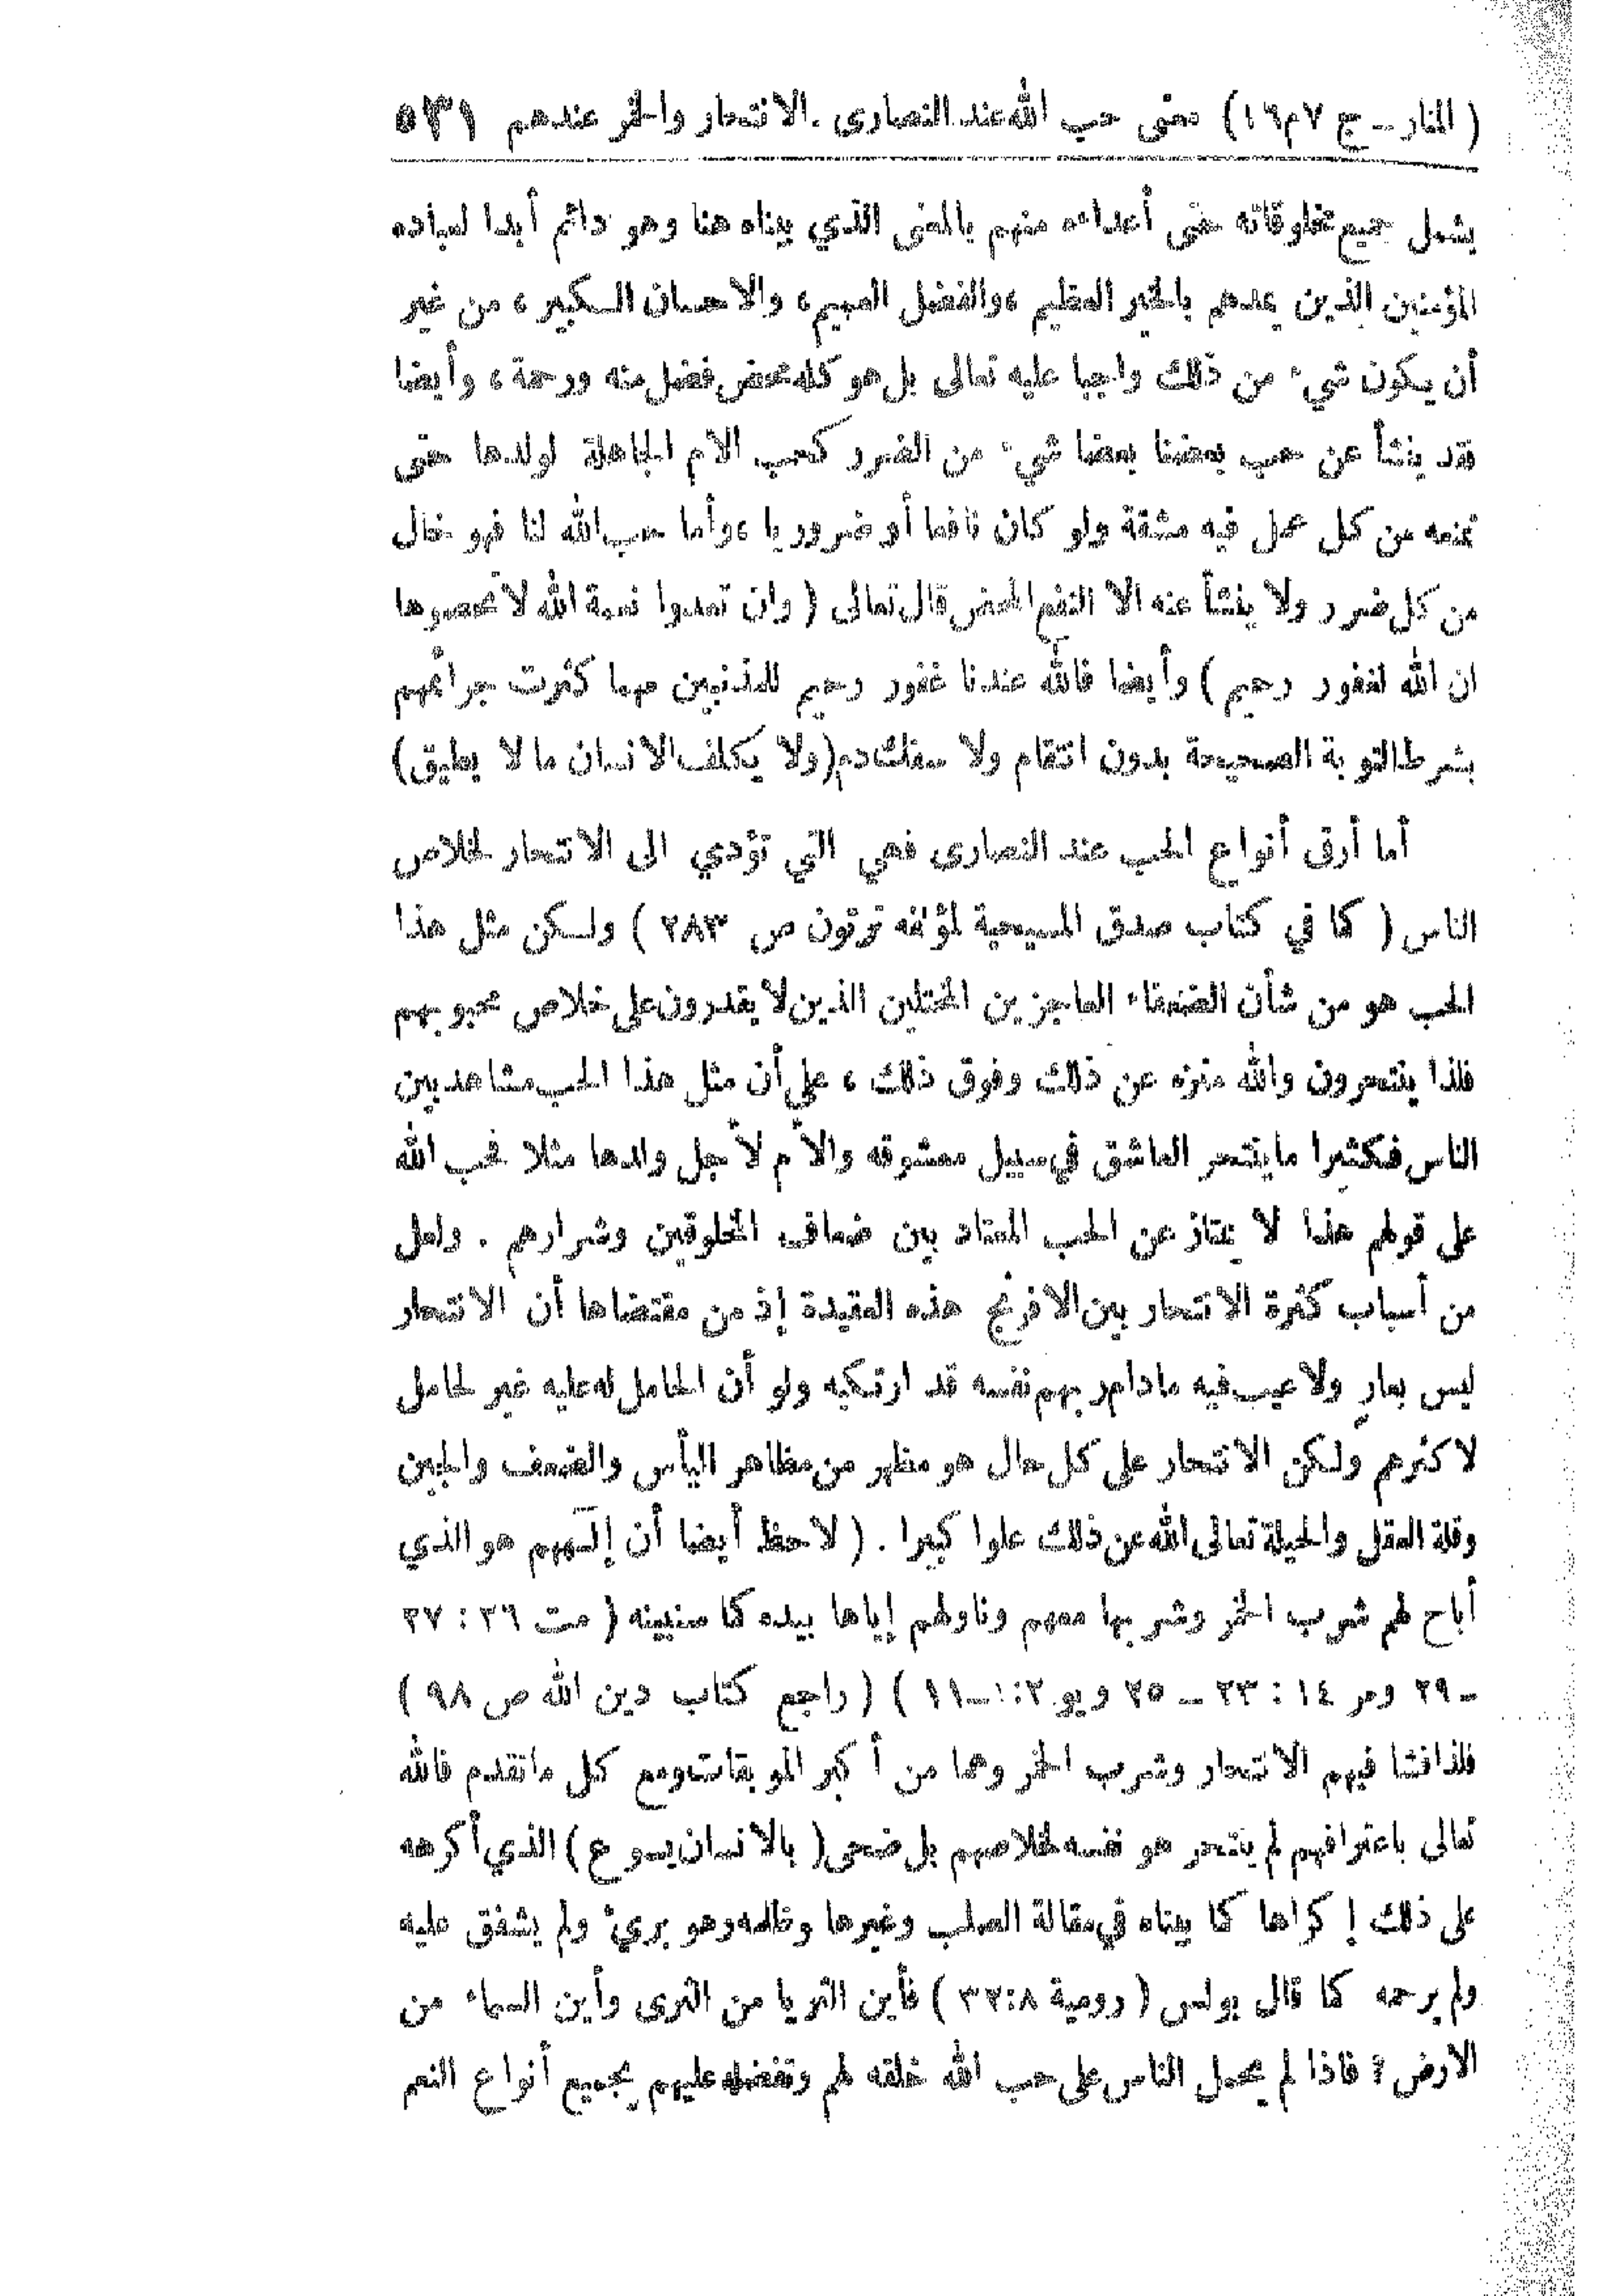 ( المنار ــ ج ٧ م ١٦ ) معنى حب الله عند النصارى . الانتحار والخمر عندهم ٥٣١
يشمل جميع مخلوقاته حتى أعداءه منهم بالمعنى الذي بيناه هنا وهو دائم أبدا لعباده
المؤمنين الذين يمدهم بالخير العظيم ، والفضل العميم ، والاحسان الكبير ، من غير
أن يكون شيء من ذلك واجبا عليه تعالى بل هو كله محض فضل منه ورحمة ، وأيضا
قد ينشأ عن حب بعضنا بعضا شيء من الضرر كحب الأم الجاهلة لولدها حتى
تمنعه عن كل عمل فيه مشقة ولو كان نافعا أو ضروريا ، وأما حب الله لنا فهو خال
من كل ضرر ولا ينشأ عنه الا النفع المحض قال تعالى ( وان تعدوا نعمة الله لا تحصوها
ان الله لغفور رحيم ) وأيضا فالله عندنا غفور رحيم للمذنبين مهما كثرت جرائمهم
بشرط التوبة الصحيحة بدون انتقام ولا سفك دم ( ولا يكلف الانسان ما لا يطيق )
أما أرقى أنواع الحب عند النصارى فهي التي تؤدي الى الانتحار لخلاص
الناس ( كما في كتاب صدق المسيحية لمؤلفه ترتون ص ٢٨٣ ) ولكن مثل هذا
الحب هو من شأن الضعفاء العاجزين المختلين الذين لا يقدرون على خلاص محبوبهم
فلذا ينتحرون والله منزه عن ذلك وفوق ذلك ، على أن مثل هذا الحب مشاهد بين
الناس فكثيرا ما ينتحر العاشق في سبيل معشوقه والأم لأجل ولدها مثلا فحب الله
على قولهم هذا لا يمتاز عن الحب المعتاد بين ضعاف المخلوقين وشرارهم . ولعل
من أسباب كثرة الانتحار بين الافرنج هذه العقيدة إذ من مقتضاها أن الانتحار
ليس بعار ولا عيب فيه ما دام ربهم نفسه قد ارتكبه ولو أن الحامل له عليه غير الحامل
لاكثرهم ولكن الانتحار على كل حال هو مظهر من مظاهر اليأس والضعف والجبن
وقلة العقل والحيلة تعالى الله عن ذلك علوا كبيرا . ( لاحظ أيضا أن إلٓههم هو الذي
أباح لهم شرب الخمر وشربها معهم وناولهم إياها بيده كما سنبينه ( مت ٢٦ : ٢٧
ــ ٢٩ ومر ١٤ : ٢٣ ــ ٢٥ ويو ٢ : ١ ــ ١١ ) ( راجع كتاب دين الله ص ٩٨ )
فلذا فشا فيهم الانتحار وشرب الخمر وهما من أكبر الموبقات ومع كل ما تقدم فالله
تعالى باعترافهم لم ينتحر هو نفسه لخلاصهم بل ضحى ( بالانسان يسوع ) الذي أكرهه
على ذلك إكراها كما بيناه في مقالة الصلب وغيرها وظلمه وهو بريء ولم يشفق عليه
ولم يرحمه كما قال بولس ( رومية ٨ : ٣٢ ) فأين الثريا من الثرى وأين السماء من
الارض ؟ فاذا لم يحمل الناس على حب الله خلقه لهم وتفضله عليهم بجميع أنواع النعم